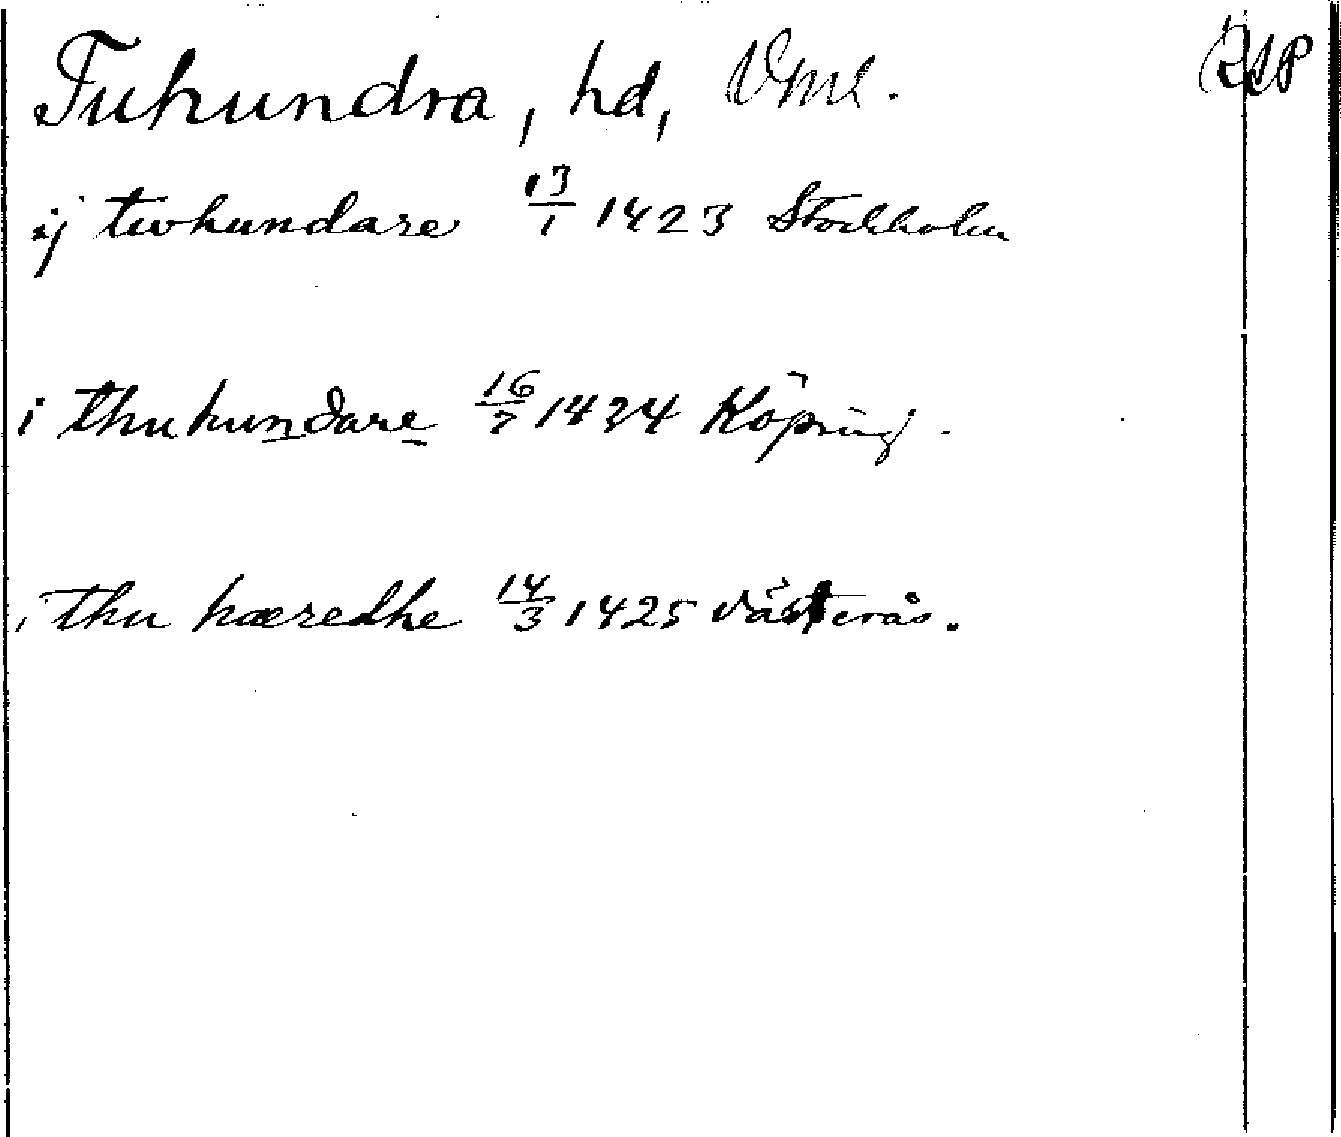 Tuhundra, hd, Vml. RAP
ij twhundare 13/1 1423 Stockholm
i thuhundare 16/7 1434 Köping.
i thu hæredhe 14/3 1425 Västerås.